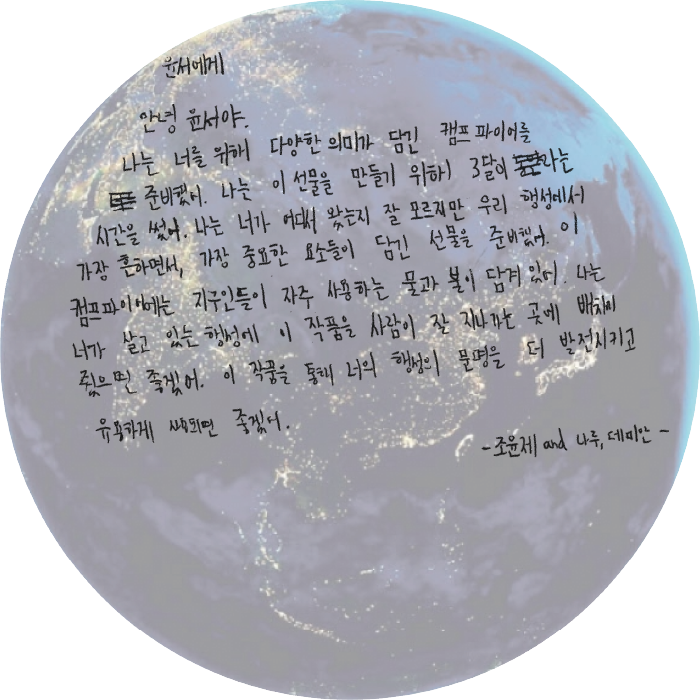 윤서에게
안녕 윤서야.
나는 너를 위해 다양한 의미가 담긴 캠프파이어를
준비했어. 나는 이 선물을 만들기 위해 3달이라는
시간을 썼어. 나는 너가 어디서 왔는지 잘 모르지만 우리 행성에서
가장 흔하면서, 가장 중요한 요소들이 담긴 선물을 준비했어. 이
캠프파이어에는 지구인들이 자주 사용하는 물과 불이 담겨 있어. 나는
너가 살고 있는 행성에 이 작품을 사람이 잘 지나가는 곳에 배치해
줬으면 좋겠어. 이 작품을 통해 너의 행성의 문명을 더 발전시키고
유용하게 사용되면 좋겠어.
-조윤제 and 나루, 데미안-